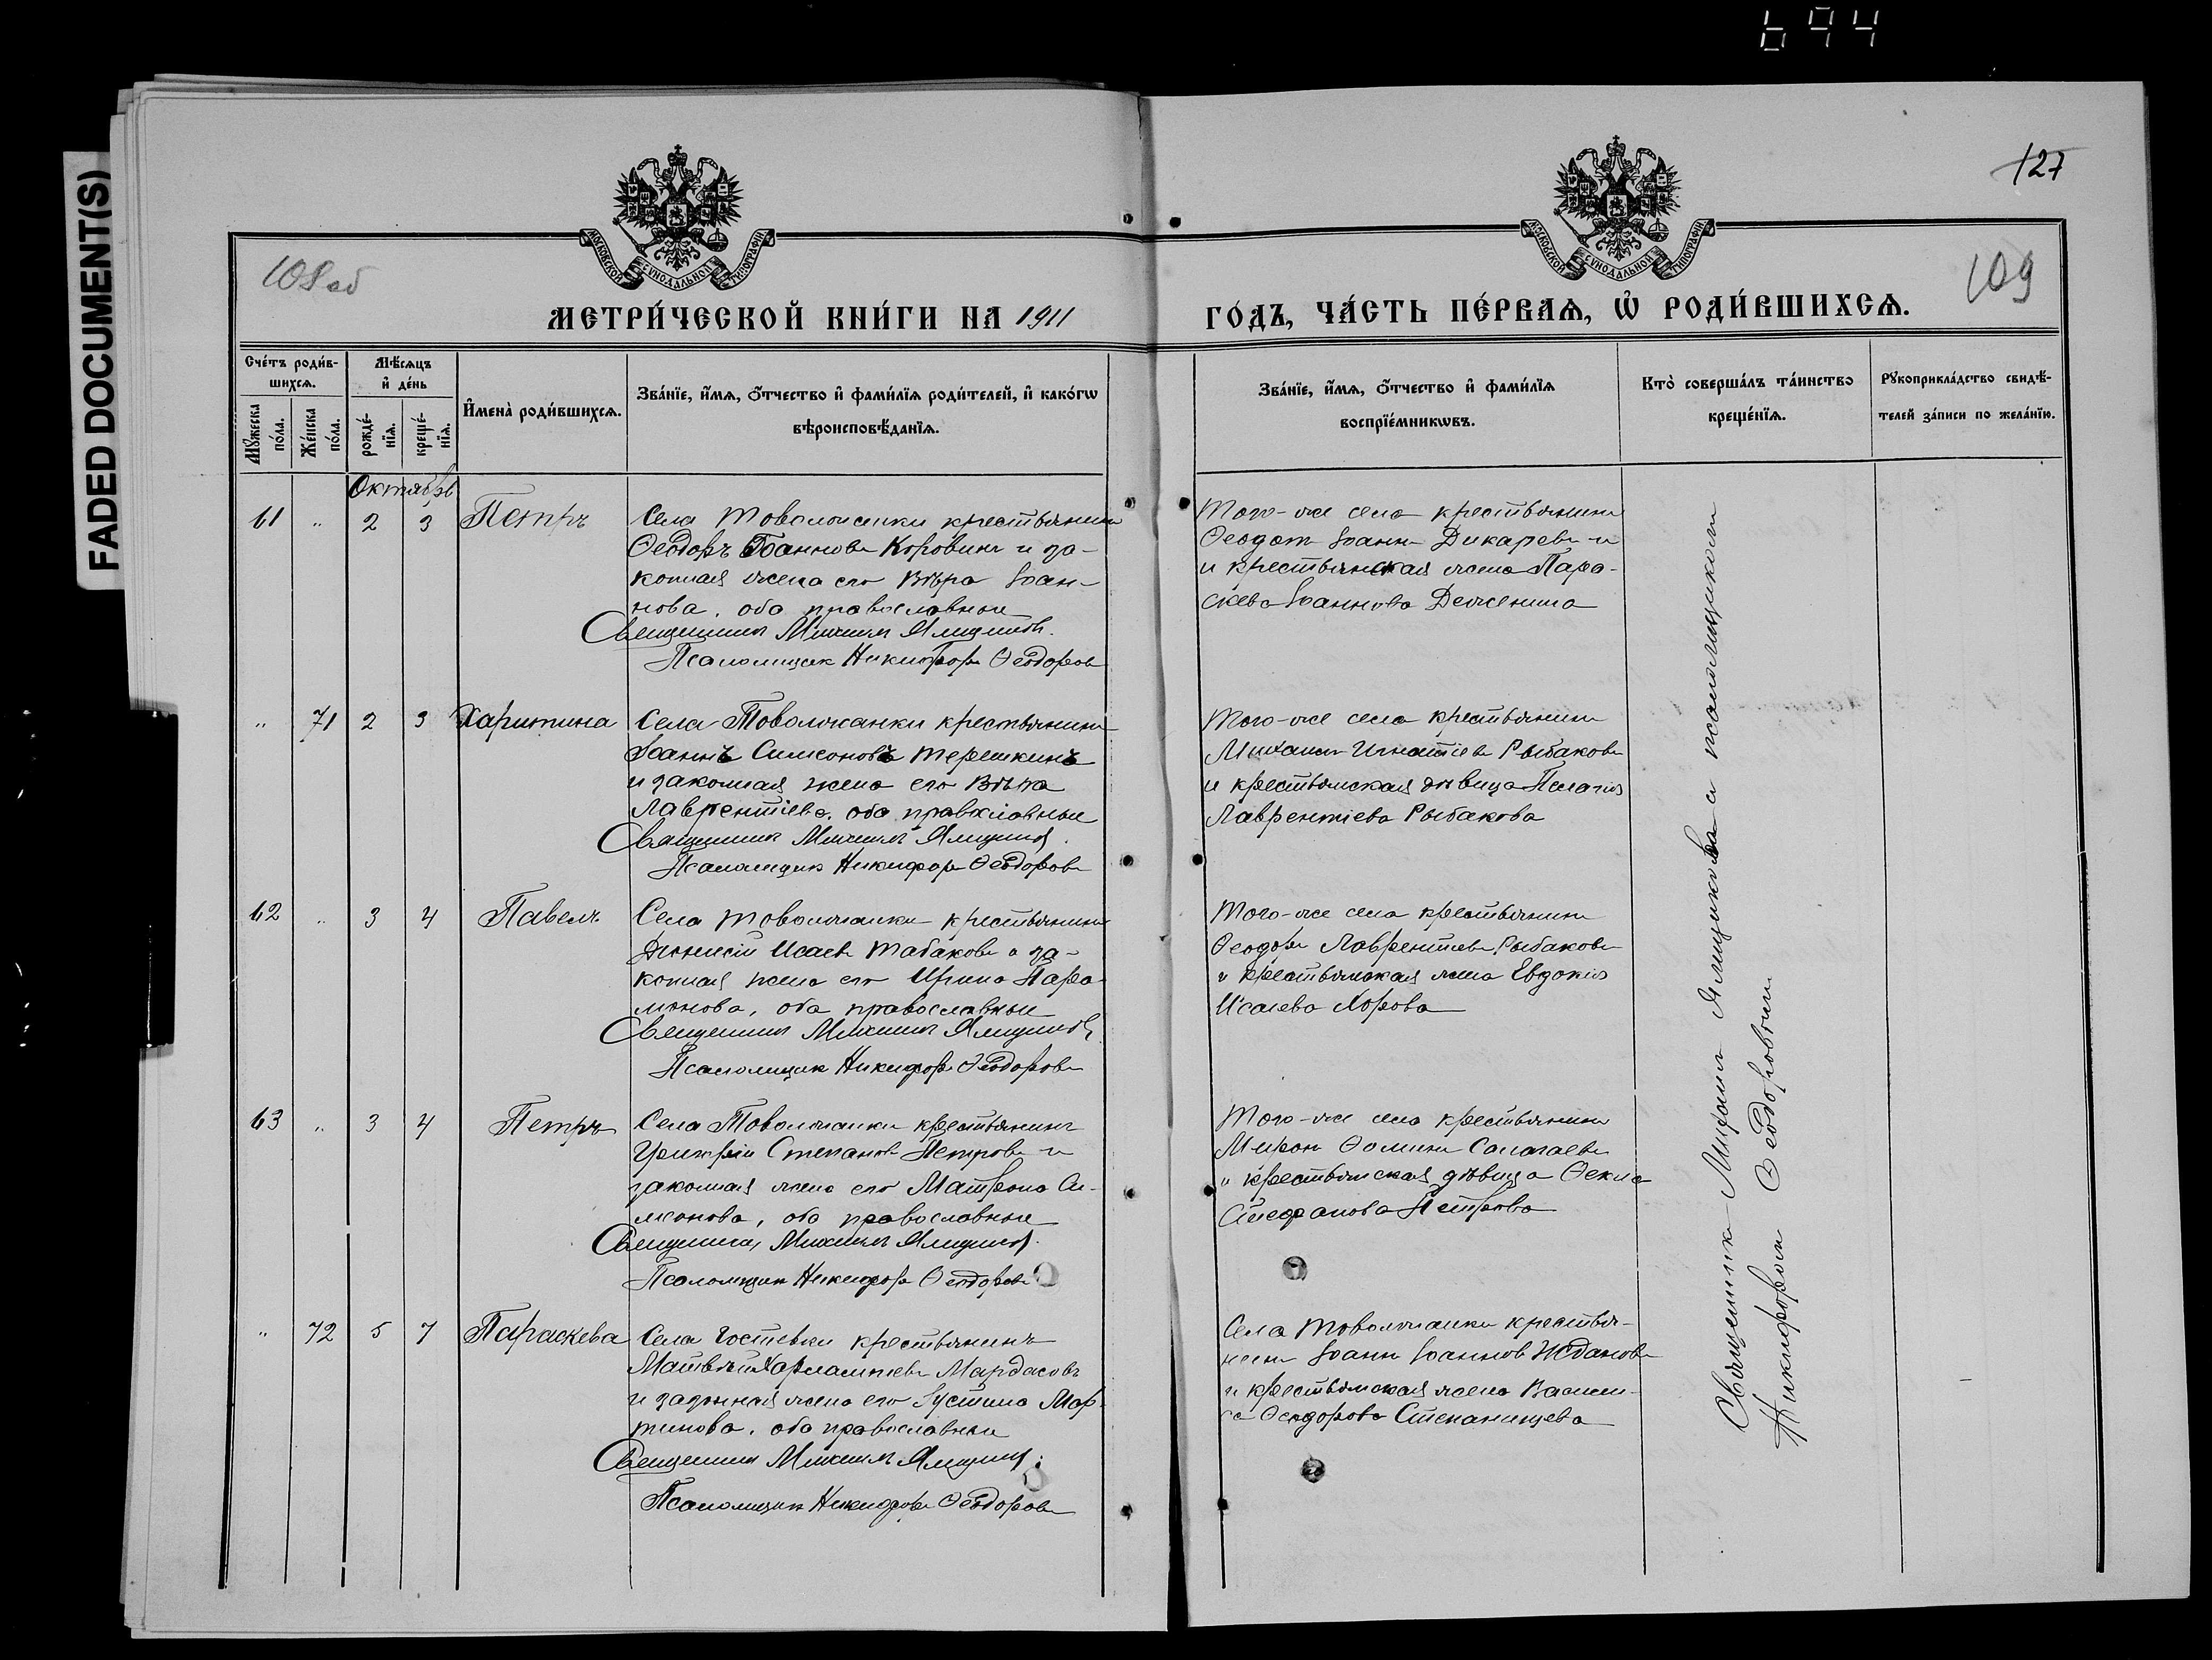 694
FADED DOCUMENT(S)
127
108 об
109
МОСКОВСКОЙ СѴНОДАЛЬНОЙ ТИПОГРАФІИ
МОСКОВСКОЙ СѴНОДАЛЬНОЙ ТИПОГРАФІИ
МЕТРИ́ЧЕСКОЙ КНИ́ГИ НА 1911
ГО́ДЪ, ЧА́СТЬ ПЕ́РВАѦ, Ѡ҆ РОДИ́ВШИХСѦ.
Сче́тъ роди́в-
шихсѧ.
Мꙋжеска по́ла.
Же́нска по́ла.
Мѣ́сѧцъ
и҆ де́нь
рожде́-
нїѧ.
креще́-
нїѧ.
И҆мена̀ роди́вшихсѧ.
Зва́нїе, и҆́мѧ, ѻ҆́тчество и҆ фами́лїѧ роди́телей, и҆ како́гѡ
вѣроисповѣ́данїѧ.
Зва́нїе, и҆́мѧ, ѻ҆́тчество и҆ фами́лїѧ
воспрїе́мникѡвъ.
Кто̀ соверша́лъ та́инство
креще́нїѧ.
Рꙋкоприкла́дство свидѣ́-
телей за́писи по жела́нїю.
Октябрь
61 " 2 3 Петръ
Села Товолжанки крестьянинъ
Ѳеодоръ Іоанновъ Коровинъ и за-
конная жена его Вѣра Іоан-
нова, оба православные
Священникъ Михаилъ Ямщиковъ.
Псаломщик Никифоръ Ѳеодоровъ
Того-же села крестьянинъ
Ѳеодот Іоанн Дикаревъ и
и крестьянская жена Пара-
скева Іоаннова Деженина
" 71 2 3 Харитина
Села Товолжанки крестьянинъ
Іоаннъ Симеоновъ Терешкинъ
и законная жена его Вѣра
Лаврентіева, оба православные
Священникъ Михаилъ Ямщиков.
Псаломщик Никифоръ Ѳеодоровъ
Того-же села крестьянинъ
Михаилъ Игнатіевъ Рыбаковъ
и крестьянская дѣвица Пелагія
Лаврентіева Рыбакова
62 " 3 4 Павелъ
Села Товолжанки крестьянинъ
Діонисій Исаевъ Табаковъ и за-
конная жена его Ирина Пара-
монова, оба православные
Священникъ Михаилъ Ямщиковъ
Псаломщик Никифоръ Ѳеодоровъ
Того-же села крестьянинъ
Ѳеодоръ Лаврентіевъ Рыбаковъ
и крестьянская жена Евдокія
Исаева Хорова
63 " 3 4 Петръ
Села Товолжанки крестьянинъ
Григорій Степановъ Петровъ и
законная жена его Матрона Си-
монова, оба православные
Священникъ Михаилъ Ямщиков.
Псаломщик Никифоръ Ѳеодоровъ
Того-же села крестьянинъ
Миронъ Ѳоминъ
и крестьянская дѣвица Ѳекла
Стефанова Петрова
" 72 5 7 Параскева
Села Гостевки крестьянинъ
Матвѣй Харлампіевъ Мардасовъ
и законная жена его Іустина Мар-
тинова, оба православные
Священникъ Михаилъ Ямщиков.
Псаломщик Никифоръ Ѳеодоровъ
Села Товолжанки крестья-
нинъ Іоанн Іоаннов Ждановъ
и крестьянская жена Васили-
са Ѳеодорова Степанищева
Священникъ Михаилъ Ямщиковъ и псаломщикомъ
Никифоромъ Ѳеодоровымъ